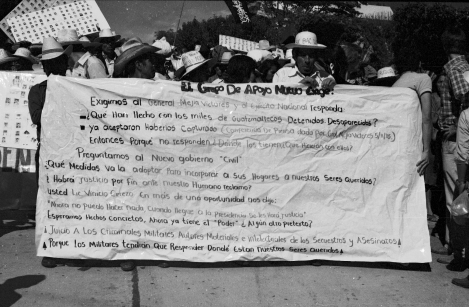 El Grupo De Apoyo Mutuo Exige:
Exigimos al General Mejia Victores y al Ejercito Nacional responda
¿Que Han Hecho con los miles de Guatemaltecos Detenidos Desaparecidos?
ya aceptaron Haberlos Capturado
Entonces Porque no responden
Preguntamos al Nuevo gobierno "Civil"
¿Qué Medidas va la adoptar Para incorporar a sus Hogares a nuestros Seres Queridos?
¿Habrá justicia por Fin ante nuestro Humano reclamo?
usted Lic Vinicio Cerezo En más de una oportunidad nos dijo:
"Ahora no puedo Hacer nada Cuando llegue a la presidencia Se les Hará justicia"
Esperamos Hechos Concretos, Ahora ya tiene el "Poder" ¿Algún otro pretexto?
¡Juicio A los Criminales Militares Autores Materiales e intelectuales de los Secuestros y Asesinatos!
¡Porque los Militares tendrán Que Responder Donde Están nuestros Seres Queridos!